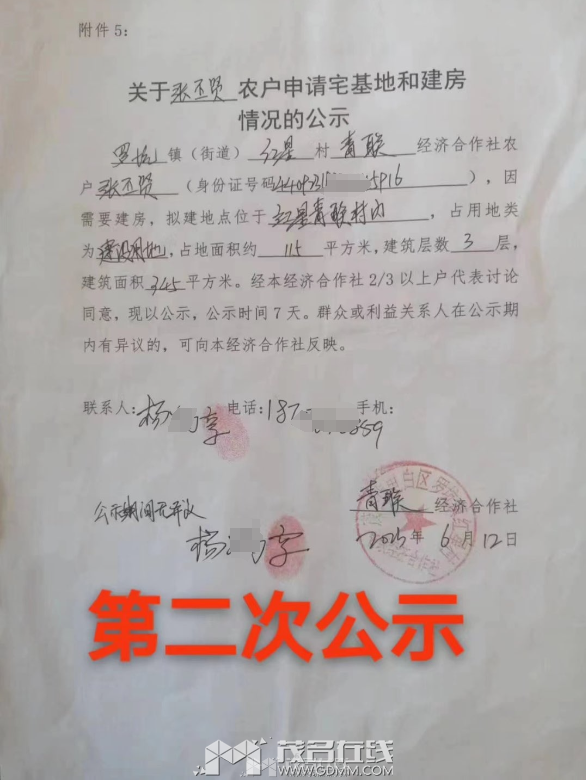 附件 5：
关于张丕贤农户申请宅基地和建房
情况的公示
罗坑镇（街道）红星村青联经济合作社农
户张丕贤（身份证号码440923 5916），因
需要建房，拟建地点位于红星青联村内，占用地类
为建设用地，占地面积约115平方米，建筑层数3层，
建筑面积345平方米。经本经济合作社 2/3 以上户代表讨论
同意，现以公示，公示时间 7 天。群众或利益关系人在公示期
内有异议的，可向本经济合作社反映。
联系人：杨 电话：187 859 手机：
公示期间无异议
青联经济合作社
杨
2025年6月12日
第二次公示
茂名在线
WWW.GDMM.COM